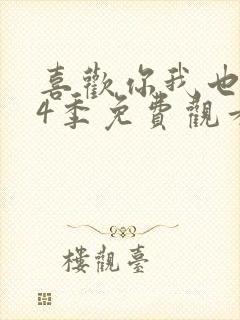 喜歡你我也
4季免費觀看
樓觀臺